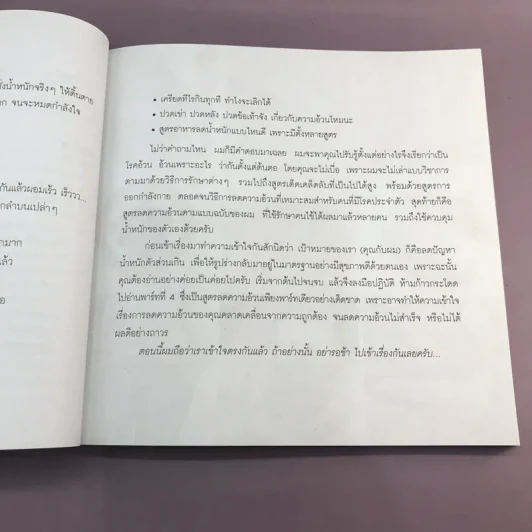 ั่งน้ำหนักจริงๆ ให้ดิ้นตาย
จนจะหมดกำลังใจ
กันแล้วผอมเร็ว เร็ววว...
กล้ามบนเปล่าๆ
กมาก
แล้ว
• เครียดทีไรกินทุกที ทำไงจะเลิกได้
• ปวดเข่า ปวดหลัง ปวดข้อเท้าจัง เกี่ยวกับความอ้วนไหมนะ
• สูตรอาหารลดน้ำหนักแบบไหนดี เพราะมีตั้งหลายสูตร
ไม่ว่าคำถามไหน ผมก็มีคำตอบมาเฉลย ผมจะพาคุณไปรับรู้ตั้งแต่อย่างไรจึงเรียกว่าเป็น
โรคอ้วน อ้วนเพราะอะไร ว่ากันตั้งแต่ต้นตอ โดยคุณจะไม่เบื่อ เพราะผมจะไม่เล่าแบบวิชาการ
ตามมาด้วยวิธีการรักษาต่างๆ รวมไปถึงสูตรเด็ดเคล็ดลับที่เป็นไปได้สูง พร้อมด้วยสูตรการ
ออกกำลังกาย ตลอดจนวิธีการลดความอ้วนที่เหมาะสมสำหรับคนที่มีโรคประจำตัว สุดท้ายก็คือ
สูตรลดความอ้วนตามแบบฉบับของผม ที่ใช้รักษาคนไข้ได้ผลมาแล้วหลายคน รวมถึงใช้ควบคุม
น้ำหนักของตัวเองด้วยครับ
ก่อนเข้าเรื่องมาทำความเข้าใจกันสักนิดว่า เป้าหมายของเรา (คุณกับผม) ก็คือลดปัญหา
น้ำหนักตัวส่วนเกิน เพื่อให้รูปร่างกลับมาอยู่ในมาตรฐานอย่างมีสุขภาพดีด้วยตนเอง เพราะฉะนั้น
คุณต้องอ่านอย่างค่อยเป็นค่อยไปครับ เริ่มจากต้นไปจนจบ แล้วจึงลงมือปฏิบัติ ห้ามก้าวกระโดด
ไปอ่านพาร์ทที่ 4 ซึ่งเป็นสูตรลดความอ้วนเพียงพาร์ทเดียวอย่างเด็ดขาด เพราะอาจทำให้ความเข้าใจ
เรื่องการลดความอ้วนของคุณคลาดเคลื่อนจากความถูกต้อง จนลดความอ้วนไม่สำเร็จ หรือไม่ได้
ผลดีอย่างถาวร
ตอนนี้ผมถือว่าเราเข้าใจตรงกันแล้ว ถ้าอย่างนั้น อย่ารอช้า ไปเข้าเรื่องกันเลยครับ...